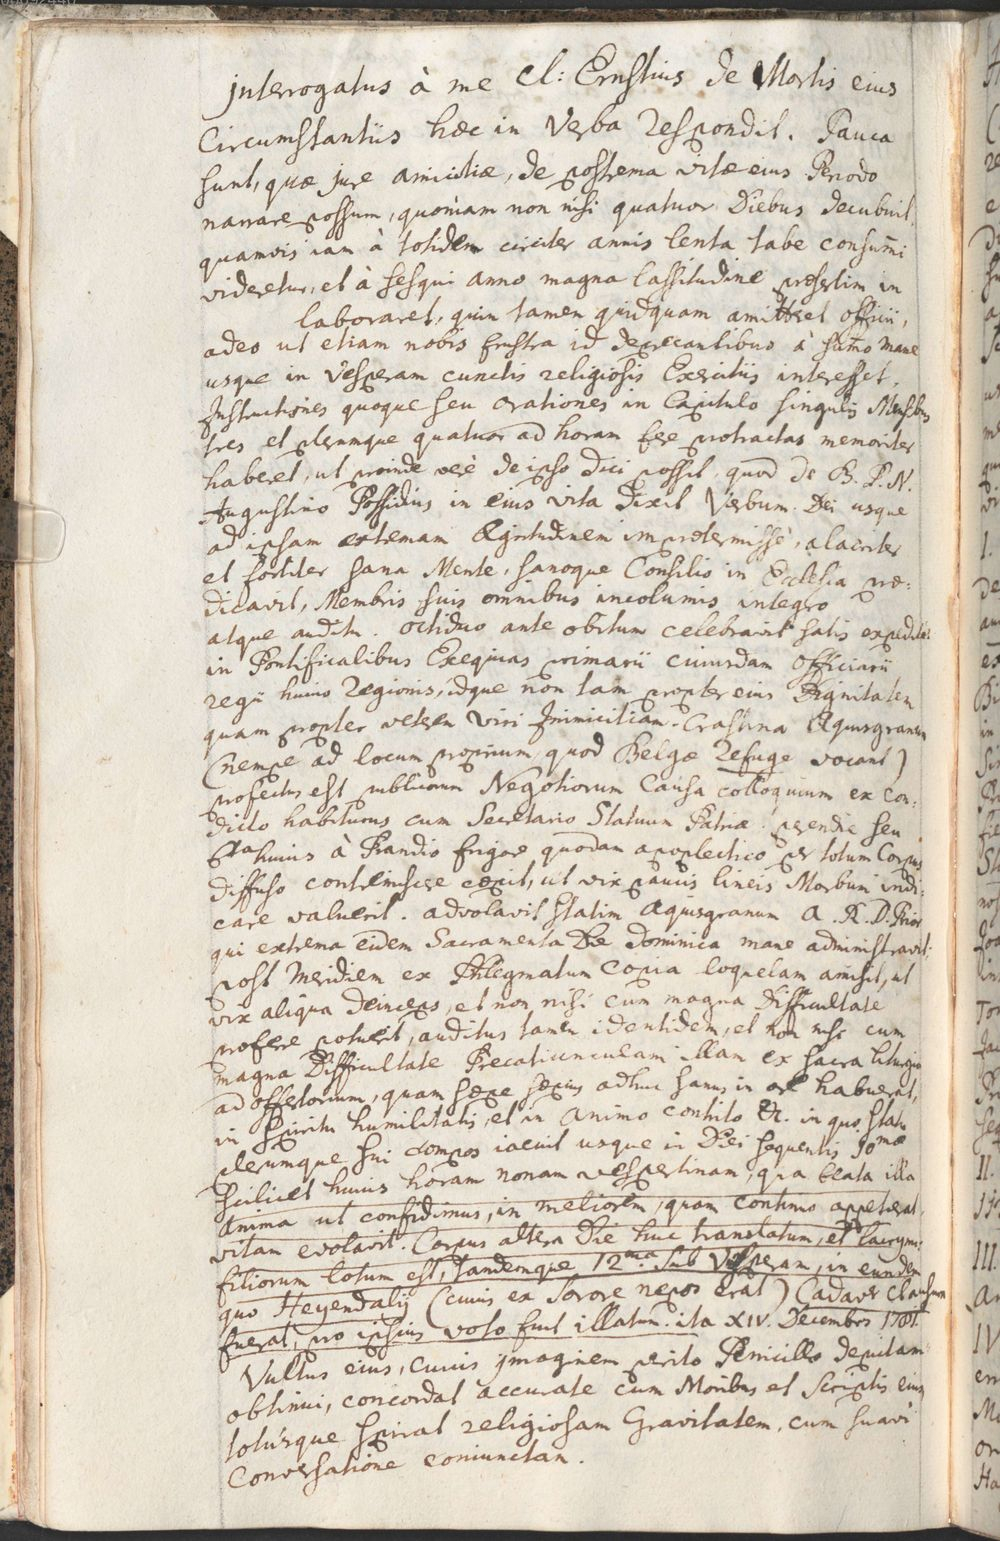 Interrogatus à me Cl: Ernstius de Mortis eius
Circumstantiis hæc in Verba Respondit. Pauca
sunt, quæ jure amicitiæ, de postrema vitæ eius Periodo
narrare possum, quoniam non nisi quatuor Diebus decubuit,
quamvis iam à totidem circiter annis lenta tabe consumi
videretur, et à sesqui anno magna lassitudine præsertim in
laboraret, quin tamen quidquam amitteret officii,
adeo ut etiam nobis frustra id deprecantibus à sumo mane
usque in Vesperam cunctis religiosis Exercitiis interesset,
Instructiones quoque seu orationes in Capitulo singulis Mensibus
tres et plerumque quatuor ad horam fere protractas memoriter
haberet, ut proinde verè de ipso dici possit, quod de B. P. N.
Augustino Possidius in eius vita Dixit Verbum Dei usque
ad ipsam extremam Ægritudinem imprætermissè, alacriter
et fortiter sana Mente, sanoque Consilio in Ecclesia præ:
dicavit, Membris suis omnibus incolumis integro
atque auditu. Octiduo ante obitum celebravit satis expeditè
in Pontificalibus Exequias primarii cuiusdam Officiarii
regii huius Regionis, idque non tam propter eius Dignitatem
quam propter veterem viri Inimicitiam. Crastina Aquisgranum
(nempe ad locum proximum, quod Belgæ Refuge vocant)
profectus est publicorum Negotiorum Causa colloquium ex con:
dicto habiturus cum Secretario Statuum Patriæ. perendie seu
huius à Prandio frigore quodam apoplectico per totum Corpus
diffuso contremiscere cœpit, ut vix paucis lineis Morbum indi:
care valuerit. advolavit statim Aquisgranum A. R. D. Prior
qui extrema eidem Sacramenta Die Dominica mane administravit;
post Meridiem ex Phlegmatum Copia loquelam amisit, ut
vix aliqua deinceps, et non nisi cum magna Difficultate
proferre potuerit, auditus tamen identidem, et non nisi cum
magna Difficultate Precatiunculam illam ex sacra liturgia
ad offertorium, quam sæpe sæpius adhuc sanus in ore habuerat,
in Spiritu humilitatis, et in animo contrito &c. in quo statu
plerumque sui compos iacuit usque in Diei sequentis 10mæ
scilicet huius horam nonam vespertinam, qua beata illa
Anima ut confidimus, in meliorem, quam continuo appeterat,
vitam evolavit. Corpus altera Die huc translatum, et lacrymis
filiorum lotum est, tandemque 12ma. sub Vesperam, in eundem
quo Heyendalij (cuius ex sorore nepos erat) Cadaver clausum
fuerat, pro ipsius voto fuit illatum. ita XIV. Decembris 1781.
Vultus eius, cuius imaginem perito Penicillo depictam
obtinui, concordat accurate cum Moribus et Scriptis eius
totusque spirat religiosam Gravitatem, cum suavi
Conversatione coniunctam.